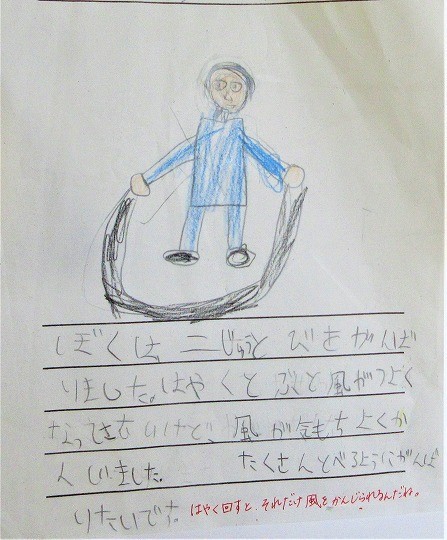 ぼくは、二じゅうとびをがんば
りました。はやくとぶと風がつよく
なってさむいけど、風が気もちよくか
んじました。 たくさんとべるようにがんば
りたいです。
はやく回すと、それだけ風をかんじられるんだね。